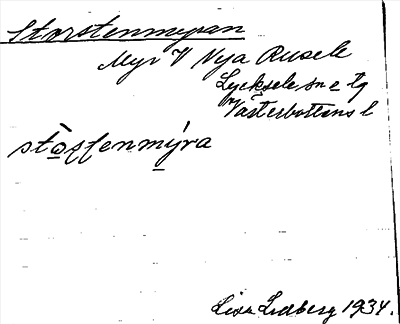 Storstenmyran
Myr V Nya Rusele
Lycksele sn o tg
Västerbottens l
stò̱ʂʈenmýra
Lisa Lidberg 1934.